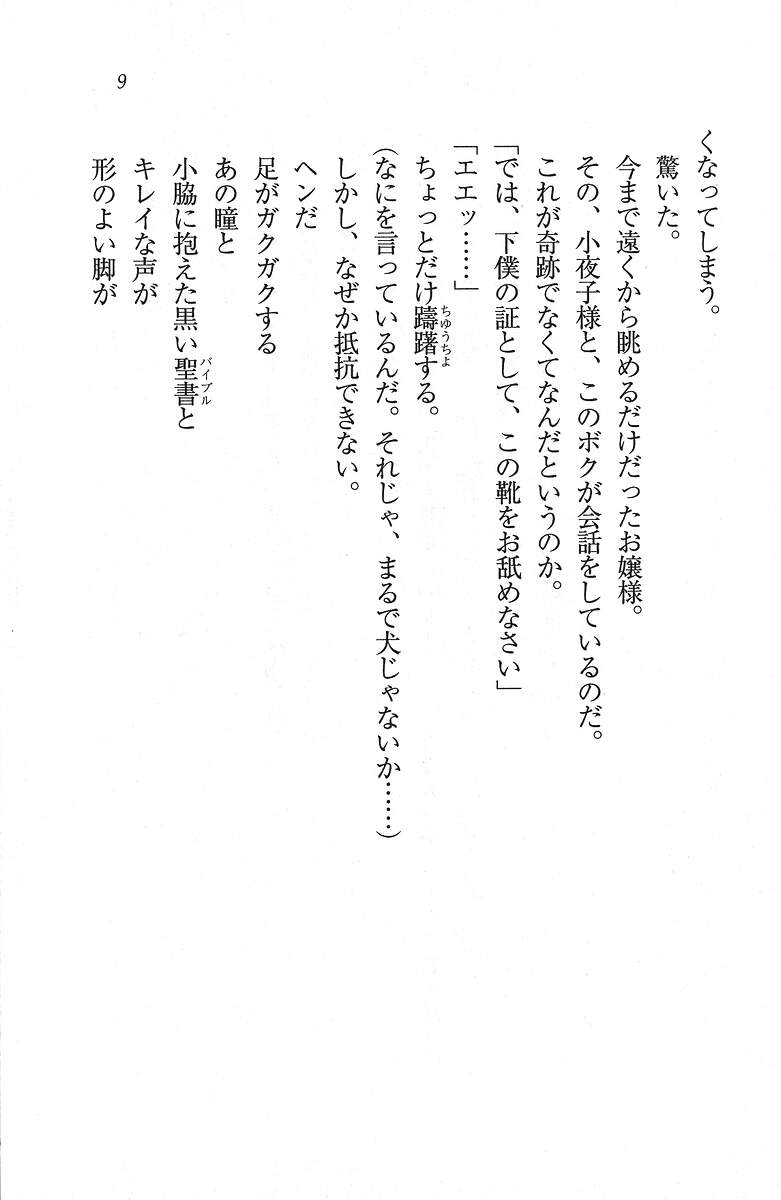 9
くなってしまう。
驚いた。
今まで遠くから眺めるだけだったお嬢様。
その、小夜子様と、このボクが会話をしているのだ。
これが奇跡でなくてなんだというのか。
「では、下僕の証として、この靴をお舐めなさい」
「エエッ……」
ちょっとだけ躊躇する。
ちゅうちよ
(なにを言っているんだ。それじゃ、まるで犬じゃないか……)
しかし、なぜか抵抗できない。
ヘンだ
足がガクガクする
あの瞳と
小脇に抱えた黒い聖書と
バイブル
キレイな声が
形のよい脚が